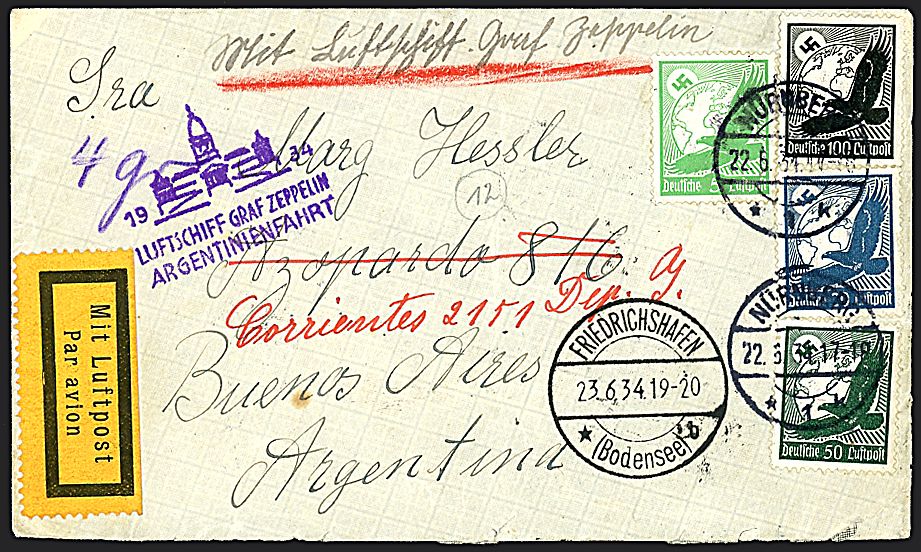 Mit Luftschiff Graf Zeppelin
Sra
Marg Hessler
4 gr
19 34
LUFTSCHIFF GRAF ZEPPELIN
ARGENTINIENFAHRT
12
Azopardo 816
Corrientes 2151 Dep. G.
Buenos Aires
Argentina
Mit Luftpost
Par avion
FRIEDRICHSHAFEN
23.6.34.19-20
b
(Bodensee)
Deutsche 5 Luftpost
Deutsche 100 Luftpost
NÜRNBERG
22.6.34.17-18
Luftpost
NÜRNBERG
22.6.34.17-18
Deutsche 50 Luftpost